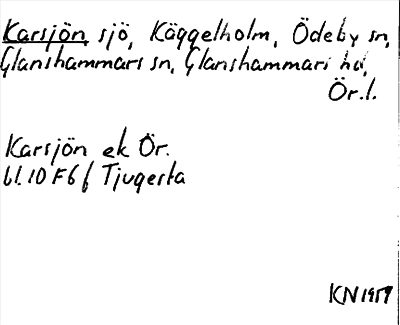 Karsjön sjö, Käggelholm, Ödeby sn,
Glanshammars sn, Glanshammars hd,
Ör.l.
Karsjön ek Ör.
bl.10 F6 f Tjugesta
KN 1959